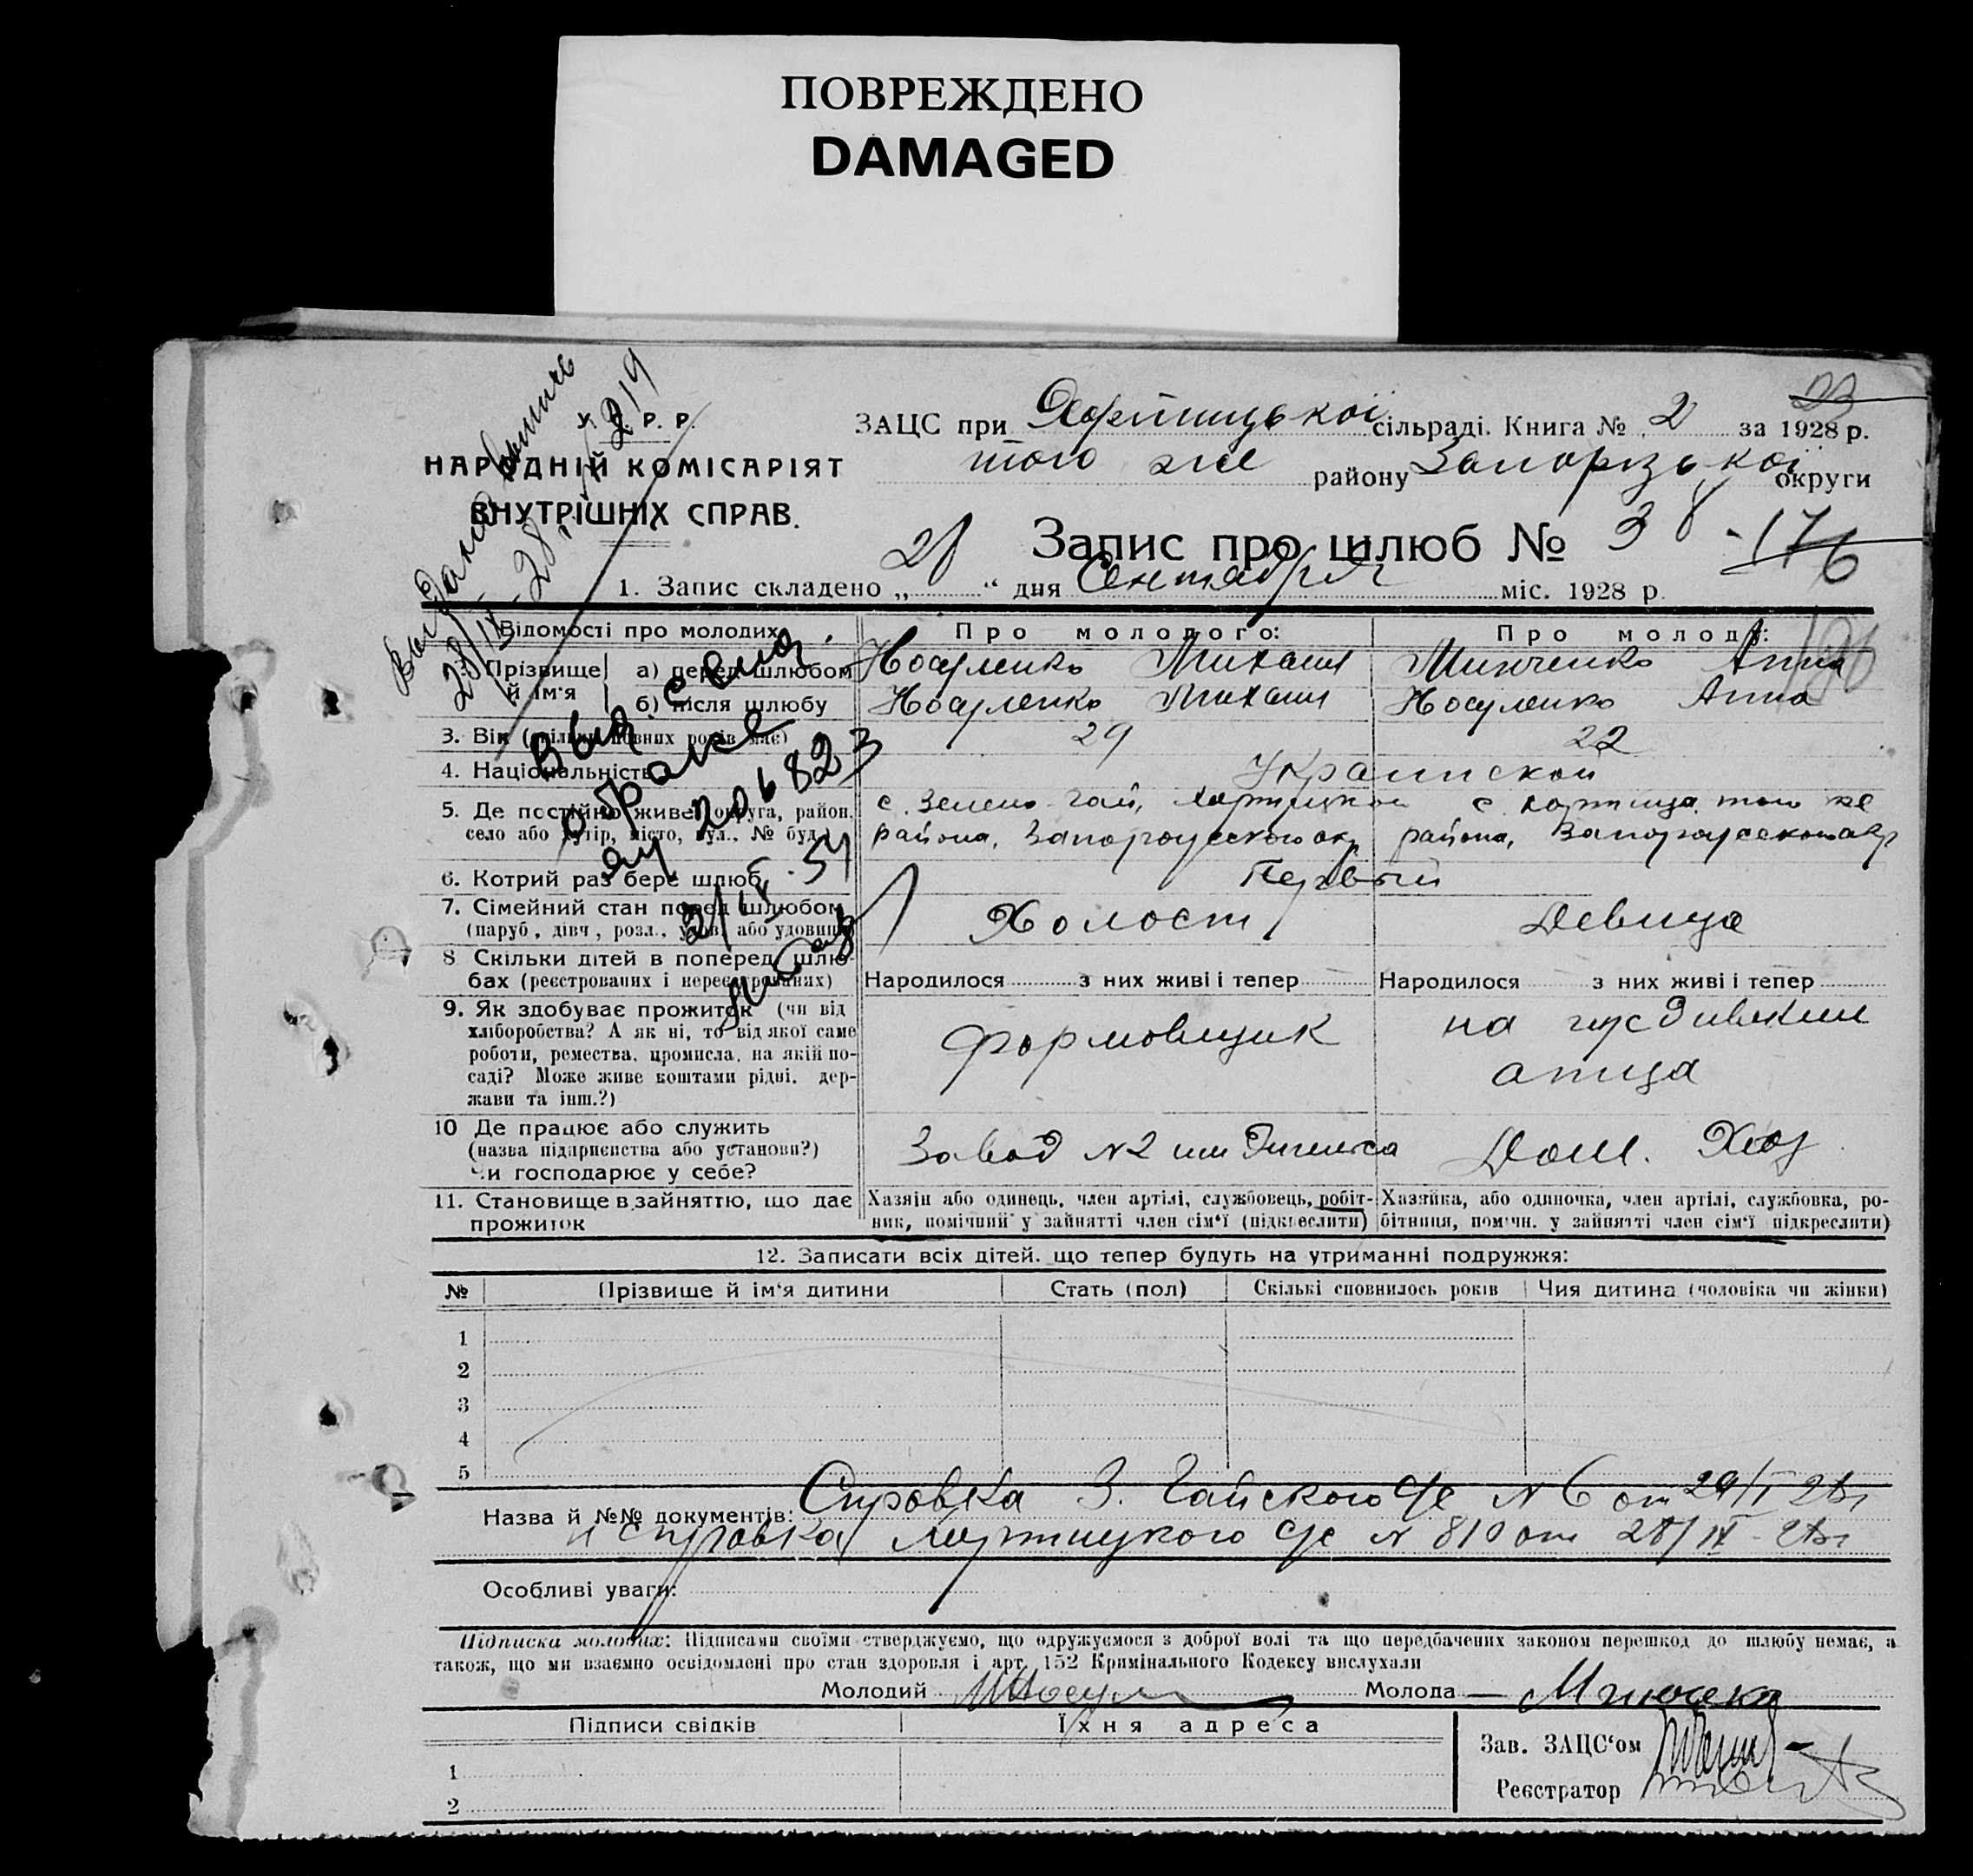 ПОВРЕЖДЕНО
DAMAGED
У. Р. Р.
НАРОДНІЙ КОМІСАРІЯТ
ВНУТРІШНІХ СПРАВ.
23
ЗАЦС при Хортицької сільраді. Книга № 2 за 1928 р.
того же району Запорізької округи
Запис про шлюб № 38 176
1. Запис складено „ 28 “ дня Сентября міс. 1928 р.
28/IX-28 г.
219
Відомості про молодих
Про молодого:
Про молоду:
2. Прізвище й ім'я
а) перед шлюбом
Носуленко Михаил
Минченко Анна
б) після шлюбу
Носуленко Михаил
Носуленко Анна
3. Вік (скільки повних років має)
29
22
4. Національність
Украинской
5. Де постійно живе (округа, район,
село або хутір, місто, вул., № буд.)
с. Зелено-Гай, Хортицкой
района, Запорожского окр
с. Хортица того же
района, Запорожского окр
6. Котрий раз бере шлюб
Первый
7. Сімейний стан перед шлюбом
(паруб., дівч., розл., удов. або удовиця)
Холост
Девица
8 Скільки дітей в поперед. шлю-
бах (реєстрованих і нереєстрованих)
Народилося з них живі і тепер
Народилося з них живі і тепер
9. Як здобуває прожиток (чи від
хліборобства? А як ні, то від якої саме
роботи, ремества, промисла, на якій по-
саді? Може живе коштами рідні, дер-
жави та інш.?)
формовщик
на иждивении
отца
10 Де працює або служить
(назва підприємства або установи?)
чи господарює у себе?
Завод №2 им Энгельса
Дом. Хоз
11. Становище в зайняттю, що дає
прожиток
Хазяін або одинець, член артілі, службовець, робіт-
ник, помічний у зайнятті член сім'ї (підкреслити)
Хазяйка, або одиночка, член артілі, службовка, ро-
бітниця, помічн. у зайнятті член сім'ї підкреслити)
Выд. св-во
о браке
206823
54
12. Записати всіх дітей, що тепер будуть на утриманні подружжя:
№ Прізвище й ім'я дитини Стать (пол) Скількі сповнилось років Чия дитина (чоловіка чи жінки)
1
2
3
4
5
Назва й №№ документів: Справка З. Гайского с/с №6 от 29/I 28г
и справка Хортицкого с/с № 810 от 28/IX-28г
Особливі уваги:
Підписка молодих: Підписами своїми стверджуємо, що одружуємося з доброї волі та що передбачених законом перешкод до шлюбу немає, а
також, що ми взаємно освідомлені про стан здоровля і арт. 152 Кримінального Кодексу вислухали
Молодий
Молода
Підписи свідків Їхня адреса
1
2
Зав. ЗАЦС'ом
Реєстратор